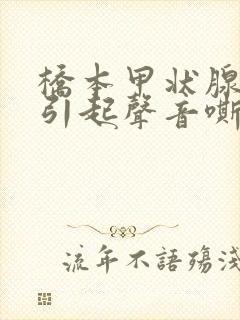 橋本甲状腺
引起聲音嘶
流年不語殤淺